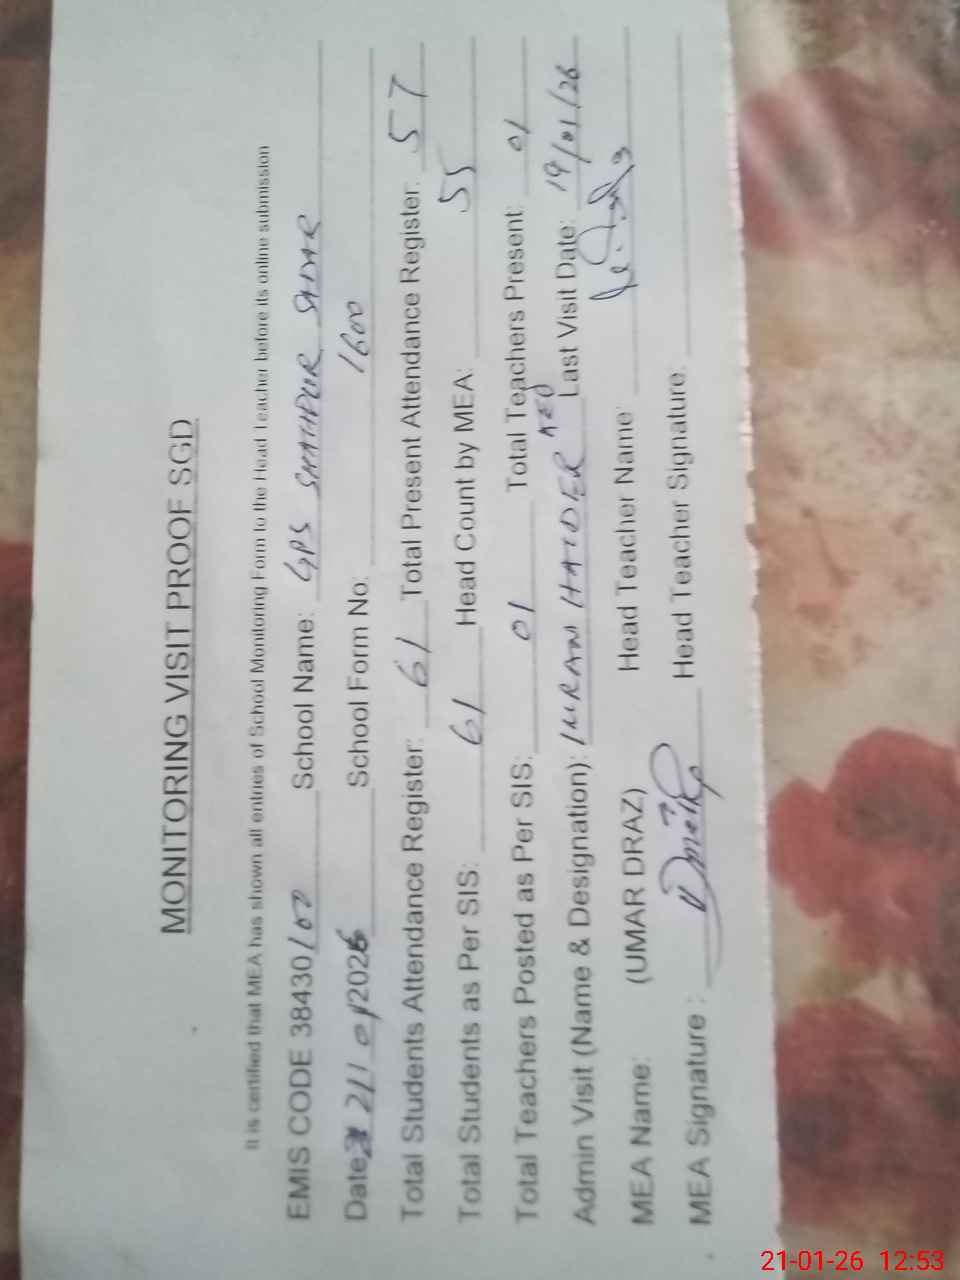 MONITORING VISIT PROOF SGD
It is certified that MEA has shown all entries of School Monitoring Form to the Head Teacher before its online submission
EMIS CODE 38430107 School Name: GPS SHAHPUR SADAR
Date 21/01/2026 School Form No. 1600
Total Students Attendance Register: 61 Total Present Attendance Register: 57
Total Students as Per SIS: 61 Head Count by MEA: 55
Total Teachers Posted as Per SIS: 01 Total Teachers Present: 01
Admin Visit (Name & Designation): IMRAN HAIDER AEO Last Visit Date: 19/01/26
MEA Name: (UMAR DRAZ) Head Teacher Name:
MEA Signature : Head Teacher Signature:
21-01-26 12:53